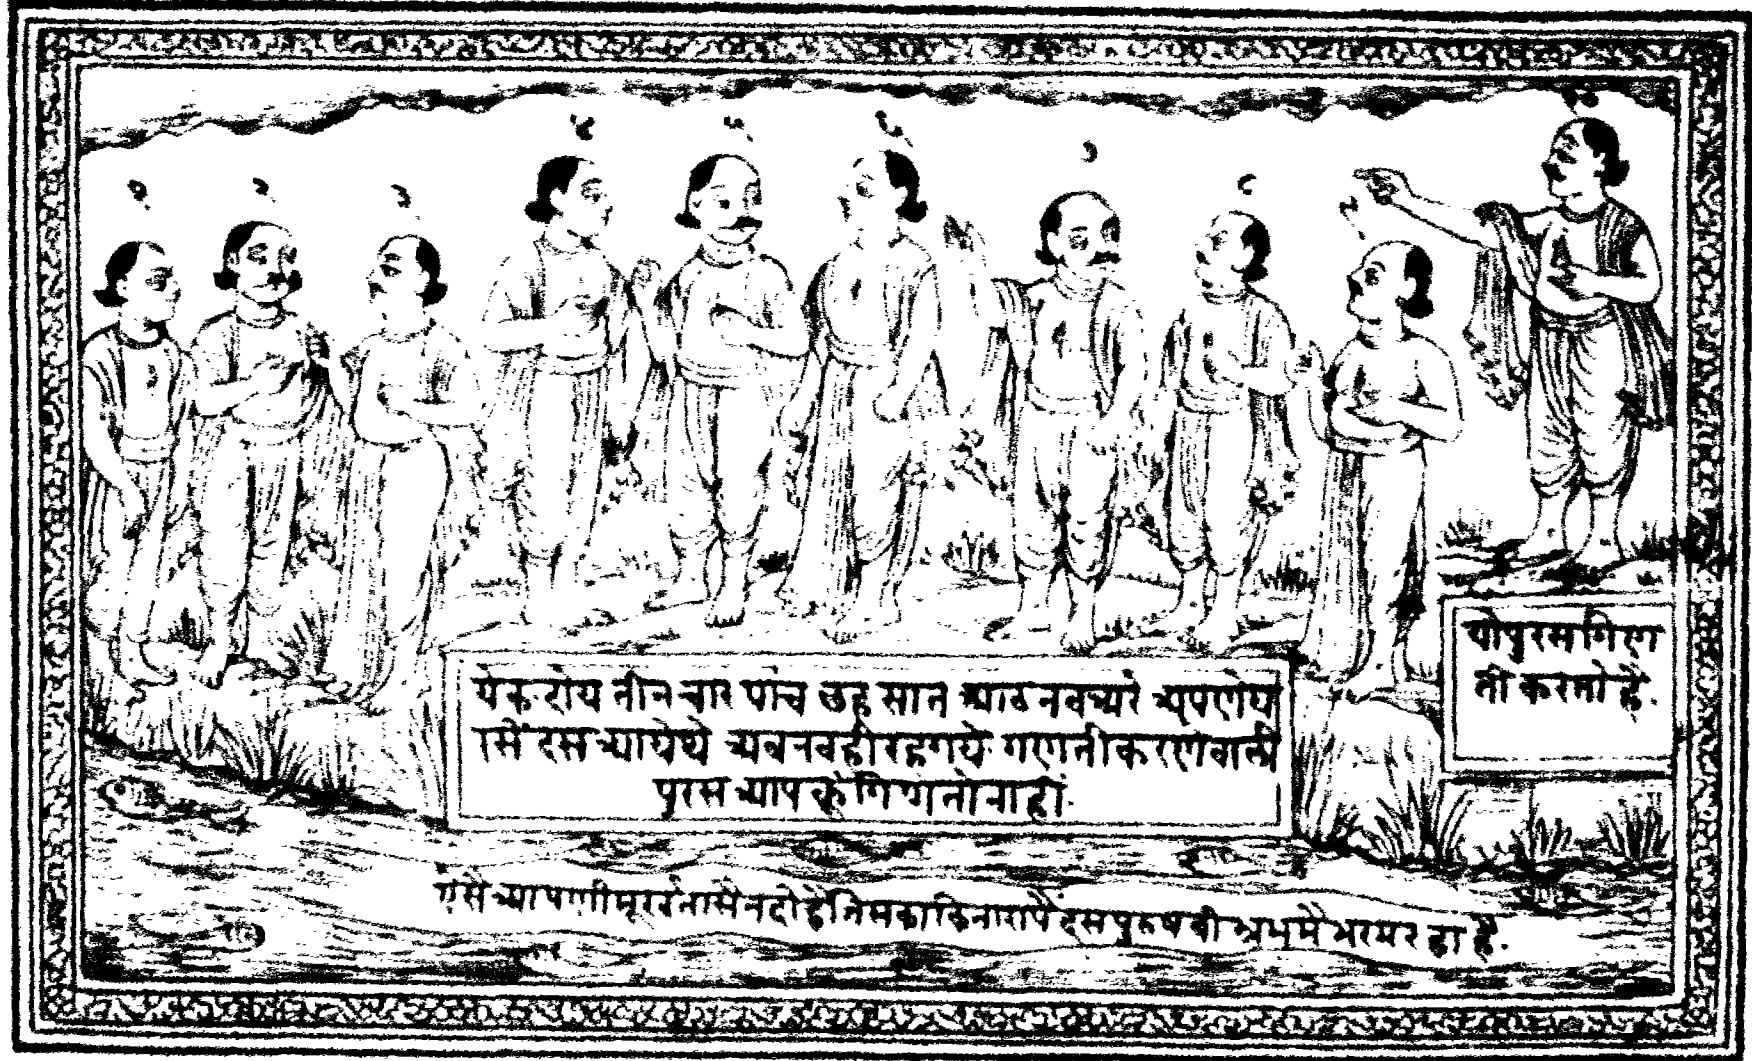 येक दोय तीन चार पांच छह सात आठ नव अरे अपणेघ
रासें दस आयेथे अब नवही रहगये गणती करणेवाली
पुरस आपकूं गिणतो नाहीं
यो पुरस गिण
ती करतो है.
ऐसे आपणी मूरखतासे नदी है तिसका किनारापै दस पुरुष बी भ्रममै भरमर हा है.